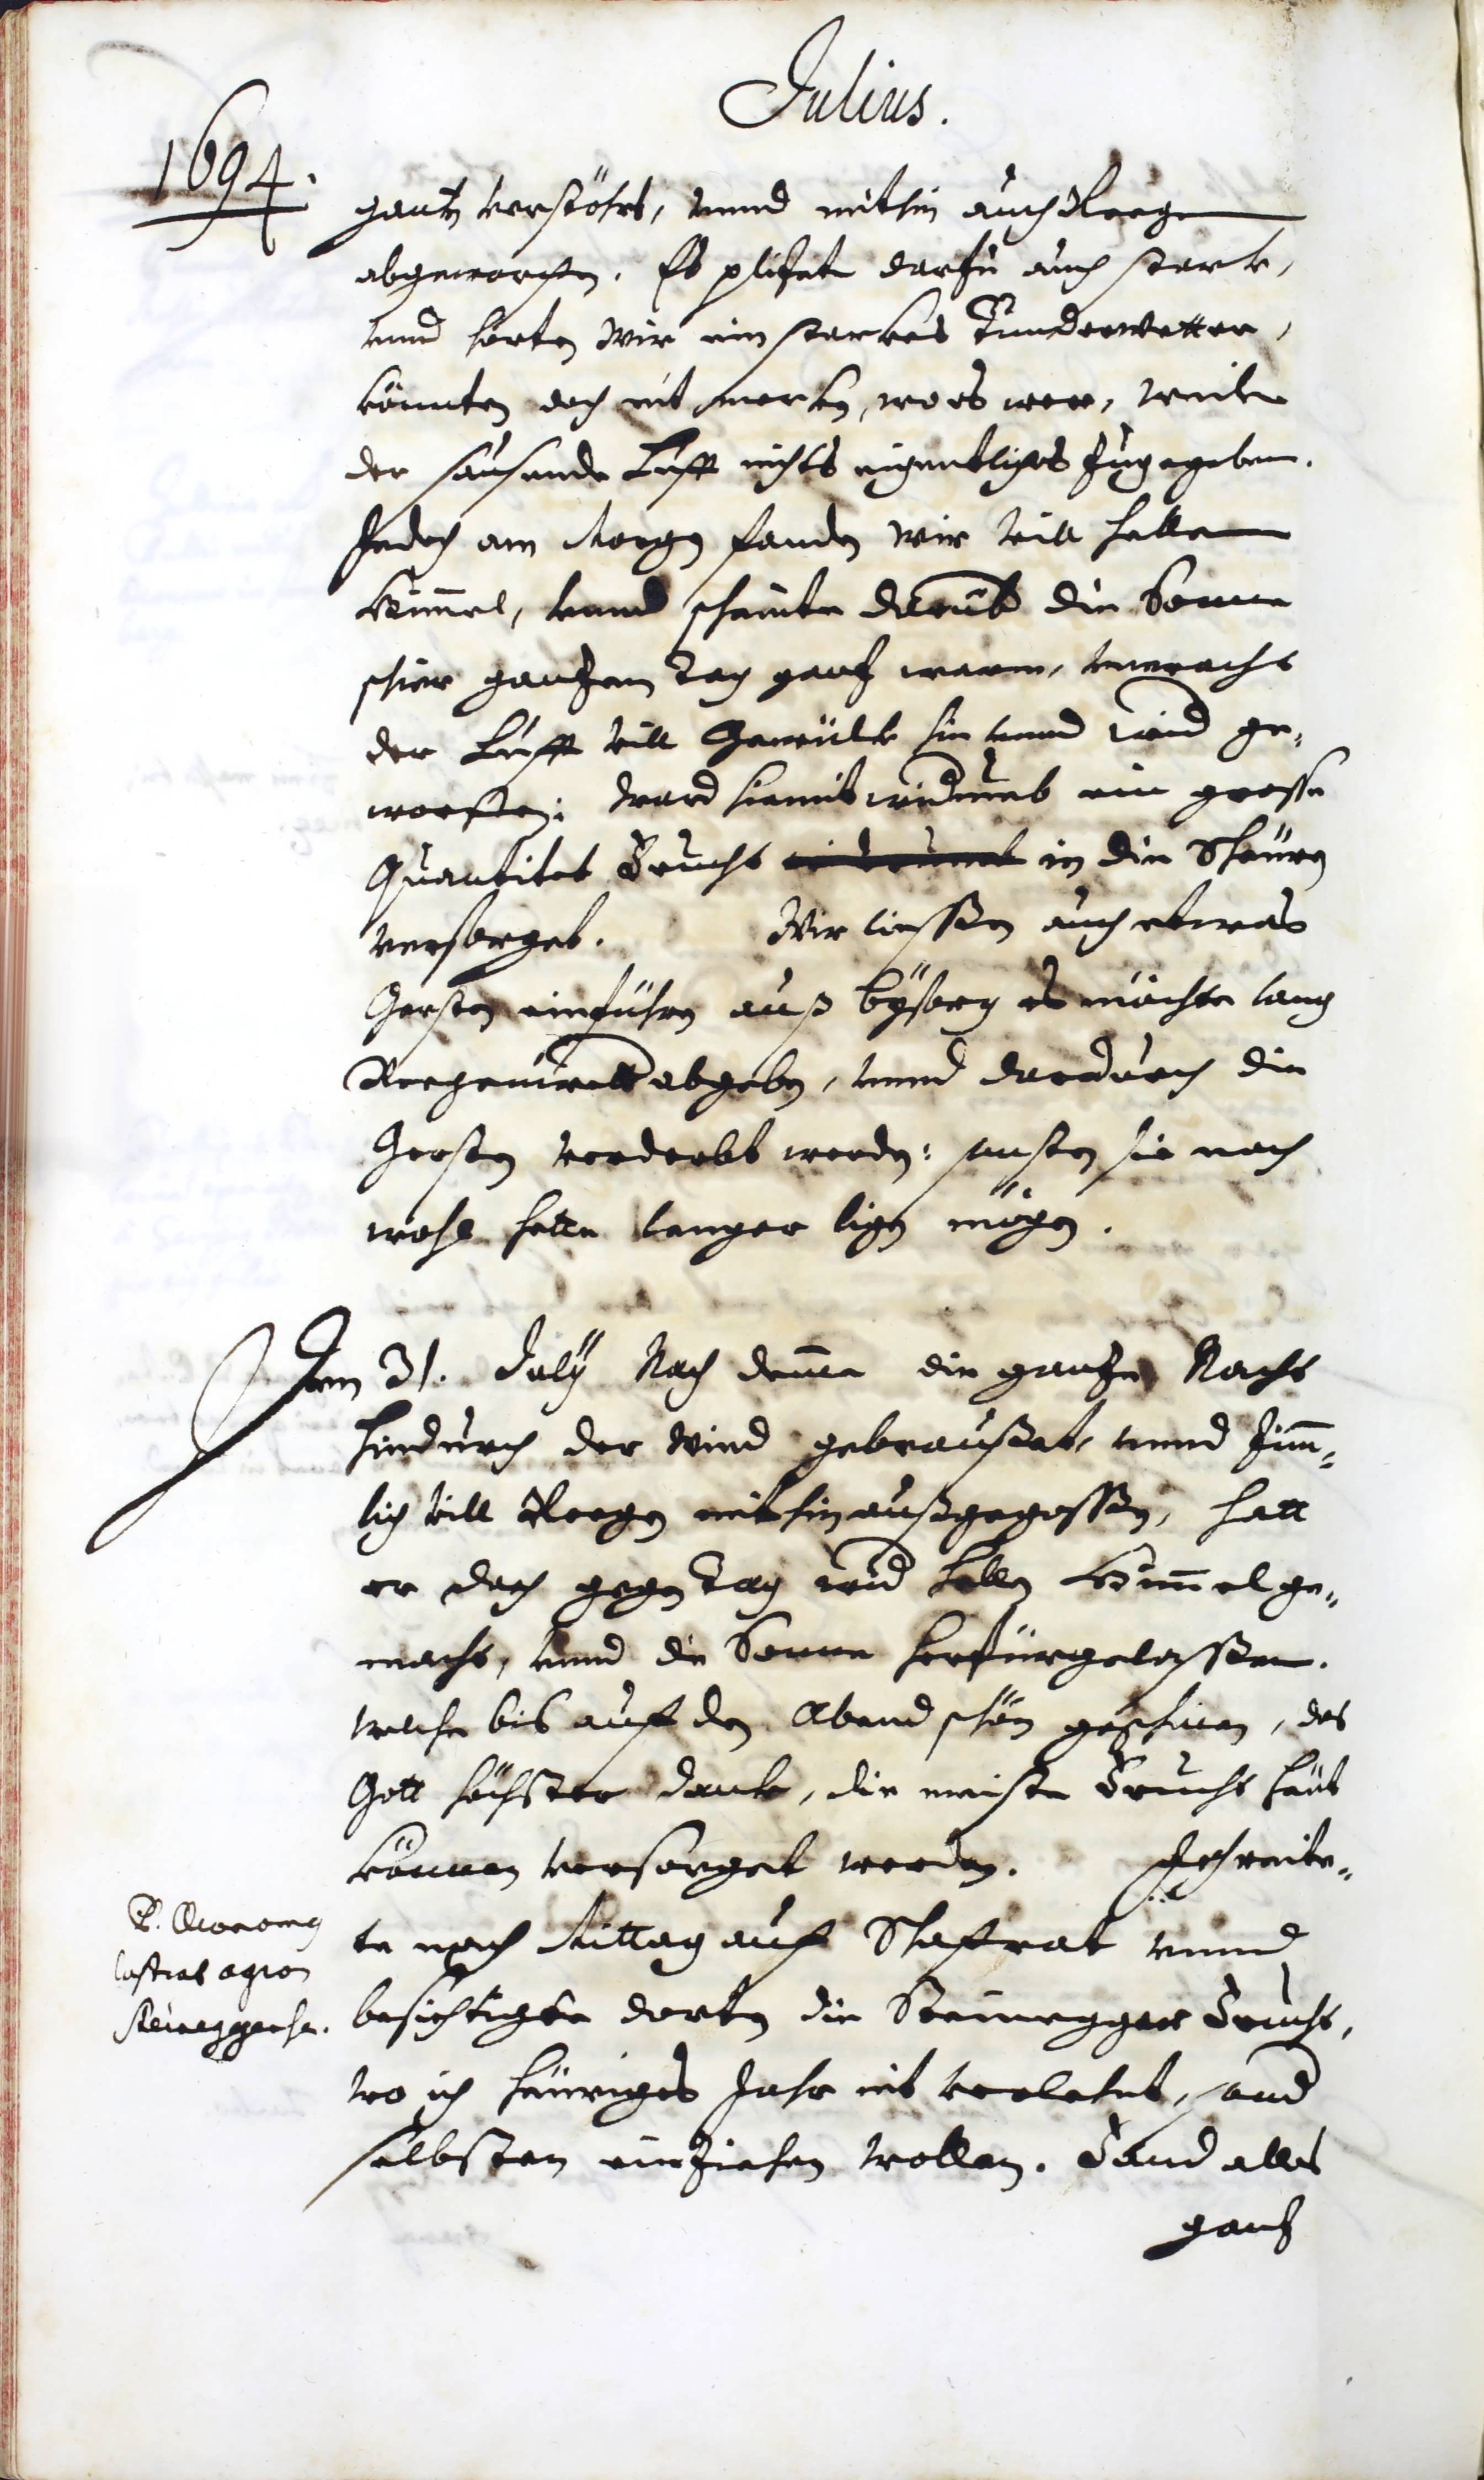 Julius.
1694.
gantz verstöhrt, vnnd mithin auch Reegen
abgeworffen. Es plitzete darzu auch starck,
vnnd horten wir ein starckes Tunderwetter,
könnten doch nit mercken, wo es were, weilen
der sausende Lufft nichts eigentliches zugegeben.
Jedoch am Morgen fanden wir vill hellen
Himmel, vnnd scheinte darauf die Sonne
schier gantzen Tag gantz warm, vneracht
der Lufft vill Gewülck hin vnnd wid ge-
worffen: ward hiemit widumb ein grosse
Quantitet Frucht in die Scheüren
versorget. Wir liessen auch etwas
Gersten einführen auß beysorg es möchte lang
Reegenwett abgeben, vnnd dardurch die
Gersten verderbt werden: sonsten sie noch
wohl hette langer ligen mögen.
Den 31. July Nach deme die gantze Nacht
hindurch der Wind gebraußet, vnnd zimm-
lich vill Reegen mithin außgegossen, hatt
er doch gegen Tag wid hellen Himmel ge-
macht, vnnd die Sonne herfürgelassen.
welche bis auf den Abend schön geschinen, das
Gott höchster danck, die meiste Frucht heüt
können versorget werden. Ich reite-
te nach Mittag auf Schafrat vnnd
besichtigte dorten die Steinegger Frucht,
wo ich heüriges Jahr nit verlehnt, sond
selbsten einziehen wollen. Fand alles
gantz
P. Oeconomus
lustrat agros
Steineggenses.